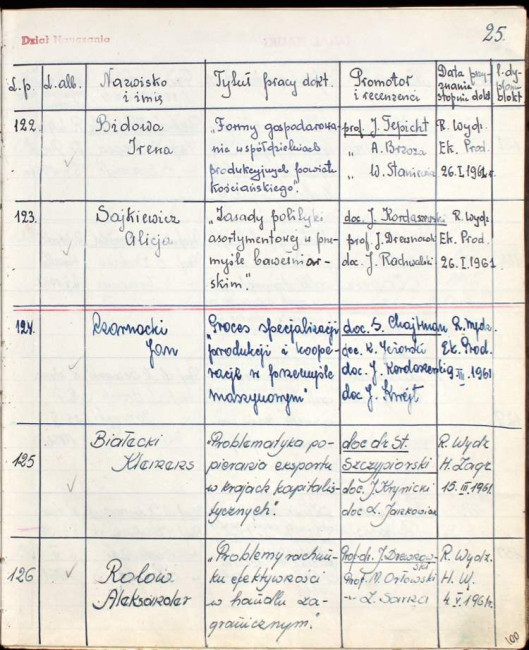 25.
Dział Nauczania
L.p. L.alb. Nazwisko i imię Tytuł pracy dokt. Promotor i recenzenci Data przyznania stopnia dokt. l. dyplomu dokt
122. Bidowa Irena
"Formy gospodarowania w spółdzielniach
produkcyjnych powiatu
kościańskiego".
prof. J. Tepicht
" A. Brzoza
" W.
R. Wydz.
Ek. Prod.
26.I.1961r.
123. Sajkiewicz
Alicja
"Zasady polityki
asortymentowej w prze-
myśle bawełniar-
skim".
doc. J. Kordaszewski
prof. J. Drewnowski
doc. J.
R. Wydz.
Ek. Prod.
26.I.1961
124. Czarnocki
Jan
"Proces specjalizacji
produkcji i koope-
racji w przemyśle
maszynowym"
doc. S. Chajtman
doc. K. Jeżowski
doc. J. Kordaszewski
doc J. Krejt
R. Wydz.
Ek. Prod.
9.III.1961
125 Białecki
Klemens
"Problematyka po-
pierania eksportu
w krajach kapitalis-
tycznych".
doc dr St.
Szczypiorski
doc. J. Krynicki
doc Z.
R. Wydz
H. Zagr
15.III.1961
126 Rolow
Aleksander
"Problemy rachun-
ku efektywności
w handlu za-
granicznym."
Prof. dr. J. Drewnow-
ski
Prof. M. Orłowski
" Z.
R. Wydz.
H. W.
4.V.1961r.
100